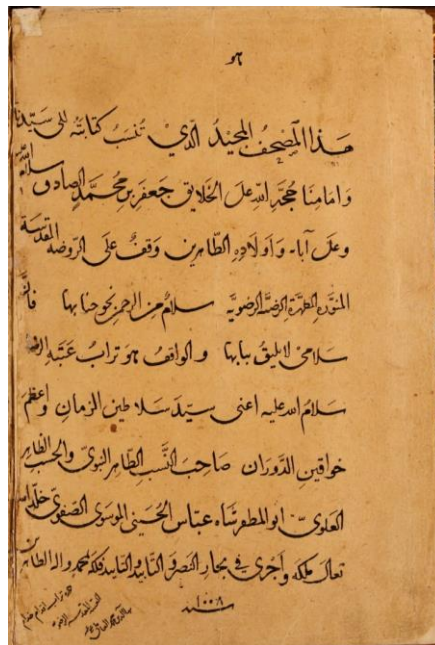 هو
هذا المصحف المجيد الذي تنسب كتابته الى سيدنا
وامامنا حجة الله على الخلايق جعفر بن محمد الصادق سلام الله
وعلى آبائه واولاده الطاهرين وقف على الروضة المقدسة
المنورة المطهرة الرضية الرضوية سلام من الرحمن نحو جنابها فان
سلامي لا يليق ببابها والواقف هو تراب عتبه
سلام الله عليه اعنى سيد سلاطين الزمان واعظم
خواقين الدوران صاحب النسب الطاهر النبوي والحسب الظاهر
العلوي ابو المظفر شاه عباس الحسيني الموسوي الصفوي خلد الله
تعالى ملكه واجرى في بحار النصر والتاييد والتابيد فلكه بمحمد واله الطاهرين
سنه ١٠٠٨